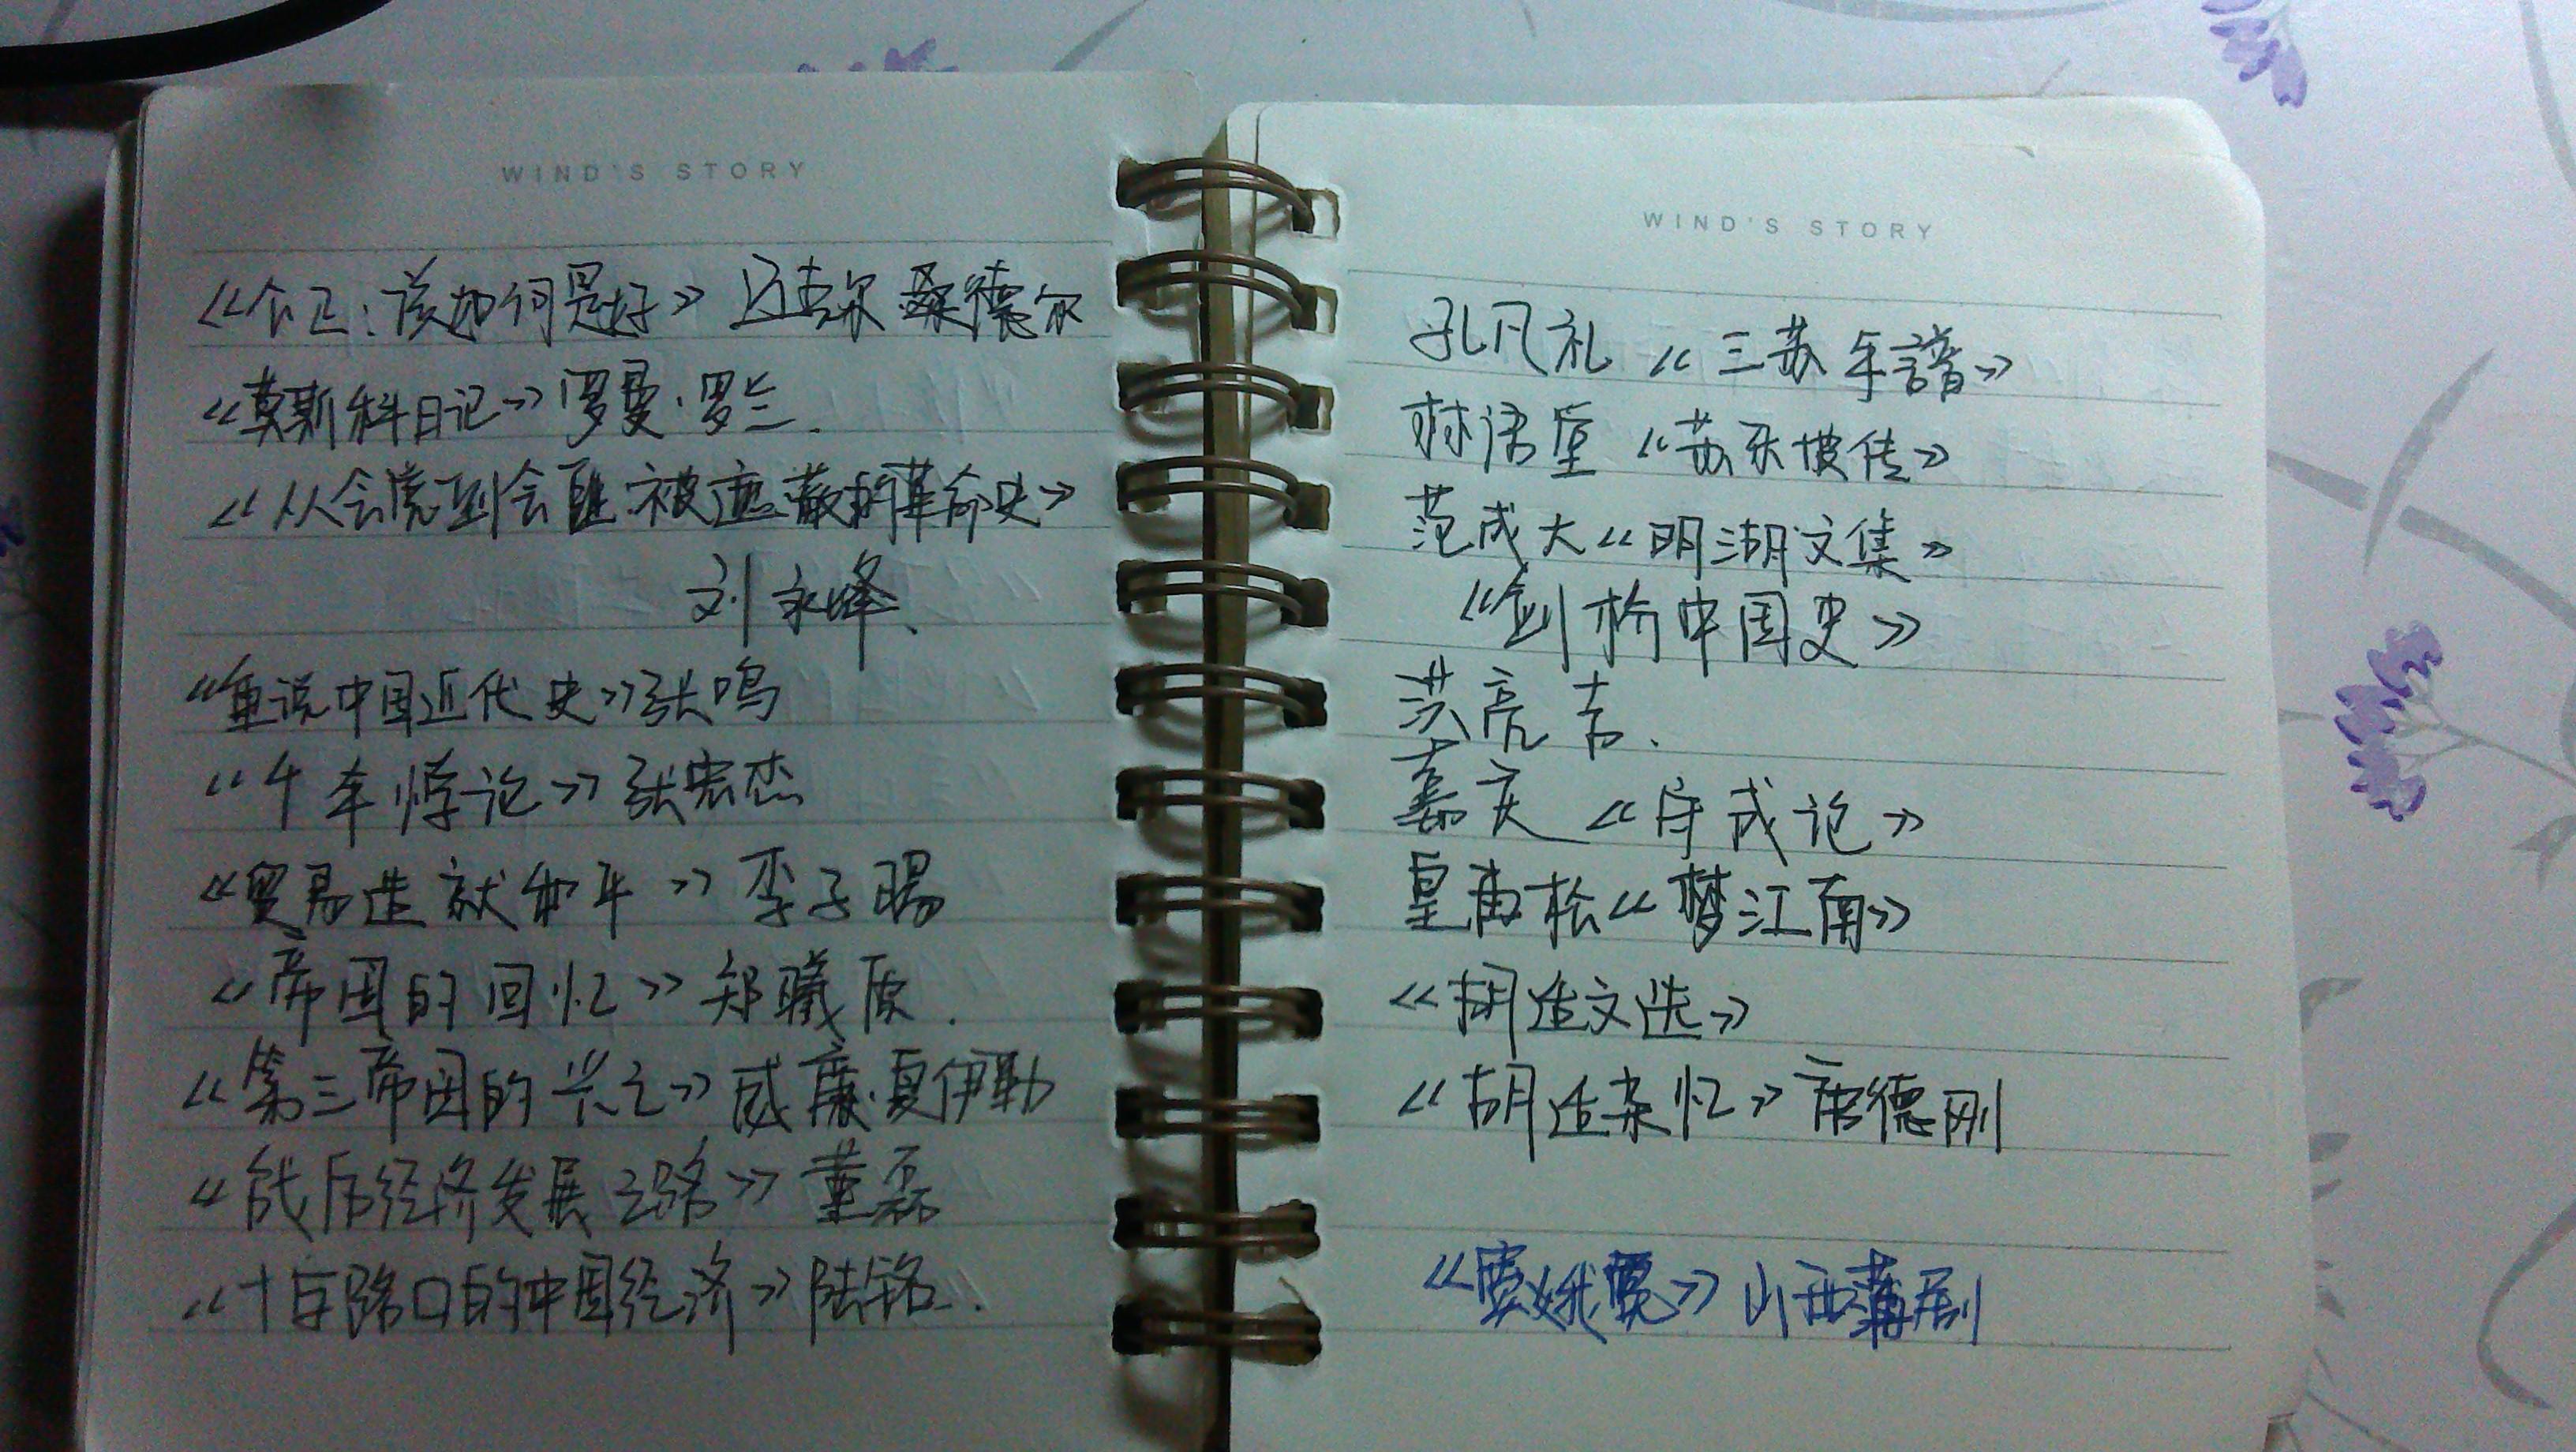 WIND'S STORY
《公正:该如何是好》 迈克尔 桑德尔
《莫斯科日记》罗曼·罗兰.
《从会党到会匪:被遮蔽的革命史》
刘永峰、
《重说中国近代史》张鸣
《千年悖论》张宏杰
《贸易造就和平》 李子旸
《帝国的回忆》 郑曦原.
《第三帝国的兴亡》威廉·夏伊勒
《战后经济发展之路》 董磊
《十字路口的中国经济》陆铭.
WIND'S STORY
孔凡礼 《三苏年譜》
林语堂 《苏东坡传》
范成大《明湖文集》
《剑桥中国史》
洪亮吉.
嘉庆 《守成论》
皇甫松《梦江南》
《胡适文选》
《胡适杂忆》唐德刚
《窦娥冤》 山西蒲剧